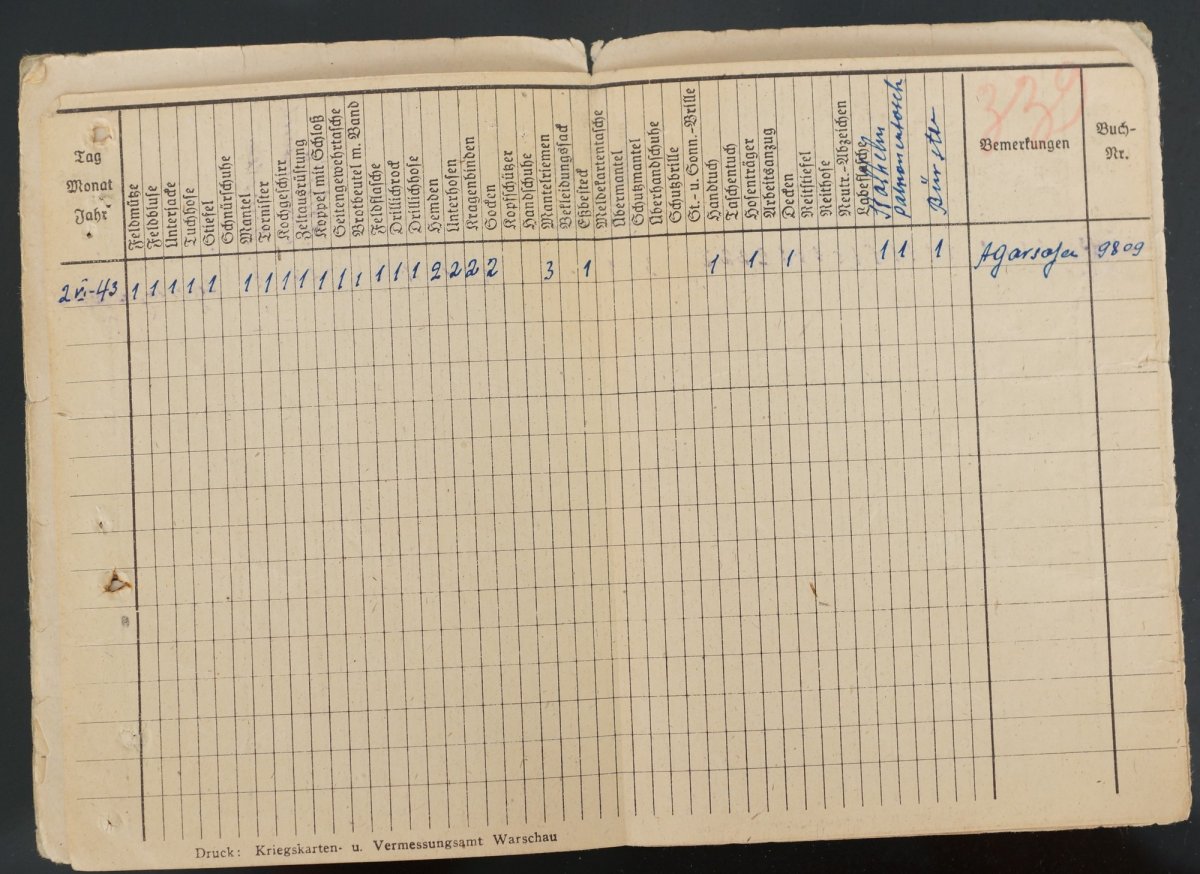 Tag
Monat
Jahr
Feldmütze
Feldbluse
Unterjacke
Tuchhose
Stiefel
Schnürschuhe
Mantel
Tornister
Kochgeschirr
Zeltausrüstung
Koppel mit Schloß
Seitengewehrtasche
Brotbeutel m. Band
Feldflasche
Drillichrock
Drillichhose
Hemden
Unterhosen
Kragenbinden
Socken
Kopfschützer
Handschuhe
Mantelriemen
Bekleidungssack
Eßbesteck
Meldekartentasche
Übermantel
Schutzmantel
Überhandschuhe
Schutzbrille
St.- u. Sonn.-Brille
Handtuch
Taschentuch
Hosenträger
Arbeitsanzug
Decken
Reitstiefel
Reithose
Neutr.-Abzeichen
Labeflasche
Stahlhelm
Bürste
339
Bemerkungen
Buch-
Nr.
2 VI-43 1 1 1 1 1 1 1 1 1 1 1 1 1 1 1 2 2 2 2 3 1 1 1 1 1 1 1 9809
Druck: Kriegskarten- u. Vermessungsamt Warschau